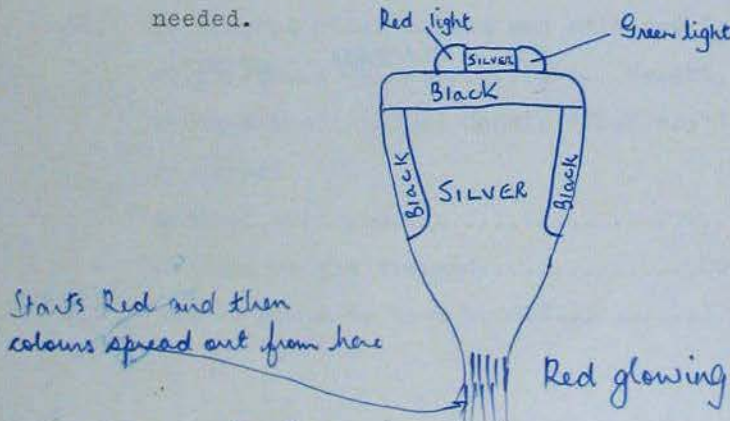 needed.
Red light
Green light
SILVER
Black
Black
SILVER
Black
Starts Red and then
colours spread out from here
Red glowing